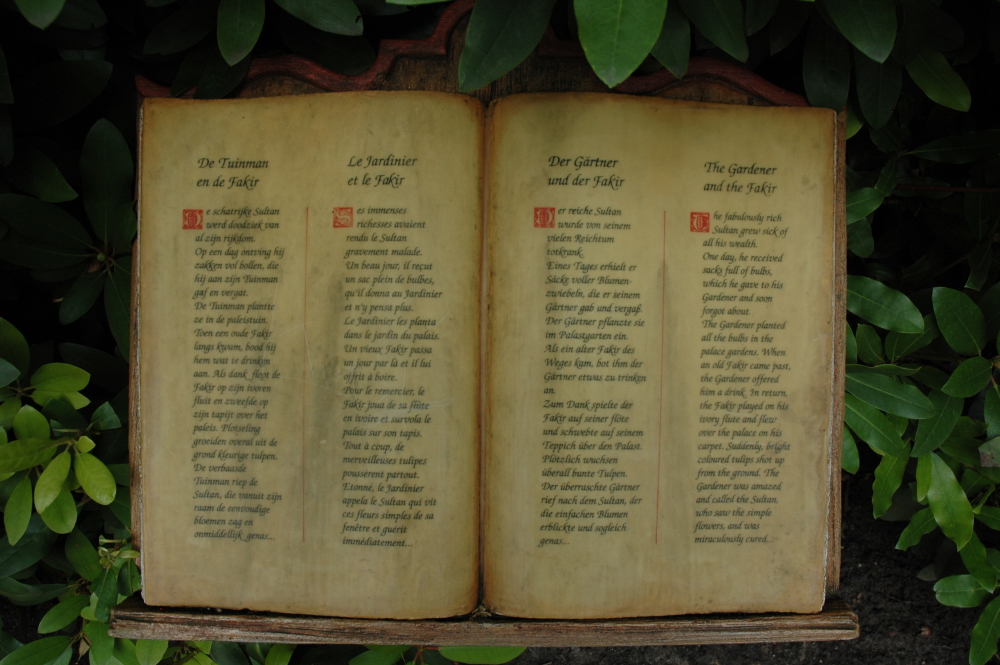 De Tuinman
en de Fakir
De schatrijke Sultan
werd doodziek van
al zijn rijkdom.
Op een dag ontving hij
zakken vol bollen, die
hij aan zijn Tuinman
gaf en vergat.
De Tuinman plantte
ze in de paleistuin.
Toen een oude Fakir
langs kwam, bood hij
hem wat te drinken
aan. Als dank floot de
Fakir op zijn ivoren
fluit en zweefde op
zijn tapijt over het
paleis. Plotseling
groeiden overal uit de
grond kleurige tulpen.
De verbaasde
Tuinman riep de
Sultan, die vanuit zijn
raam de eenvoudige
bloemen zag en
onmiddellijk genas...
Le Jardinier
et le Fakir
Ses immenses
richesses avaient
rendu le Sultan
gravement malade.
Un beau jour, il reçut
un sac plein de bulbes,
qu'il donna au Jardinier
et n'y pensa plus.
Le Jardinier les planta
dans le jardin du palais.
Un vieux Fakir passa
un jour par là et il lui
offrit à boire.
Pour le remercier, le
Fakir joua de sa flûte
en ivoire et survola le
palais sur son tapis.
Tout à coup, de
merveilleuses tulipes
poussèrent partout.
Etonné, le Jardinier
appela le Sultan qui vit
ces fleurs simples de sa
fenêtre et guérit
immédiatement...
Der Gärtner
und der Fakir
Der reiche Sultan
wurde von seinem
vielen Reichtum
totkrank.
Eines Tages erhielt er
Säcke voller Blumen-
zwiebeln, die er seinem
Gärtner gab und vergaß.
Der Gärtner pflanzte sie
im Palastgarten ein.
Als ein alter Fakir des
Weges kam, bot ihm der
Gärtner etwas zu trinken
an.
Zum Dank spielte der
Fakir auf seiner flöte
und schwebte auf seinem
Teppich über den Palast.
Plötzlich wuchsen
überall bunte Tulpen.
Der überraschte Gärtner
rief nach dem Sultan, der
die einfachen Blumen
erblickte und sogleich
genas...
The Gardener
and the Fakir
The fabulously rich
Sultan grew sick of
all his wealth.
One day, he received
sacks full of bulbs,
which he gave to his
Gardener and soon
forgot about.
The Gardener planted
all the bulbs in the
palace gardens. When
an old Fakir came past,
the Gardener offered
him a drink. In return,
the Fakir played on his
ivory flute and flew
over the palace on his
carpet. Suddenly, bright
coloured tulips shot up
from the ground. The
Gardener was amazed
and called the Sultan,
who saw the simple
flowers, and was
miraculously cured...